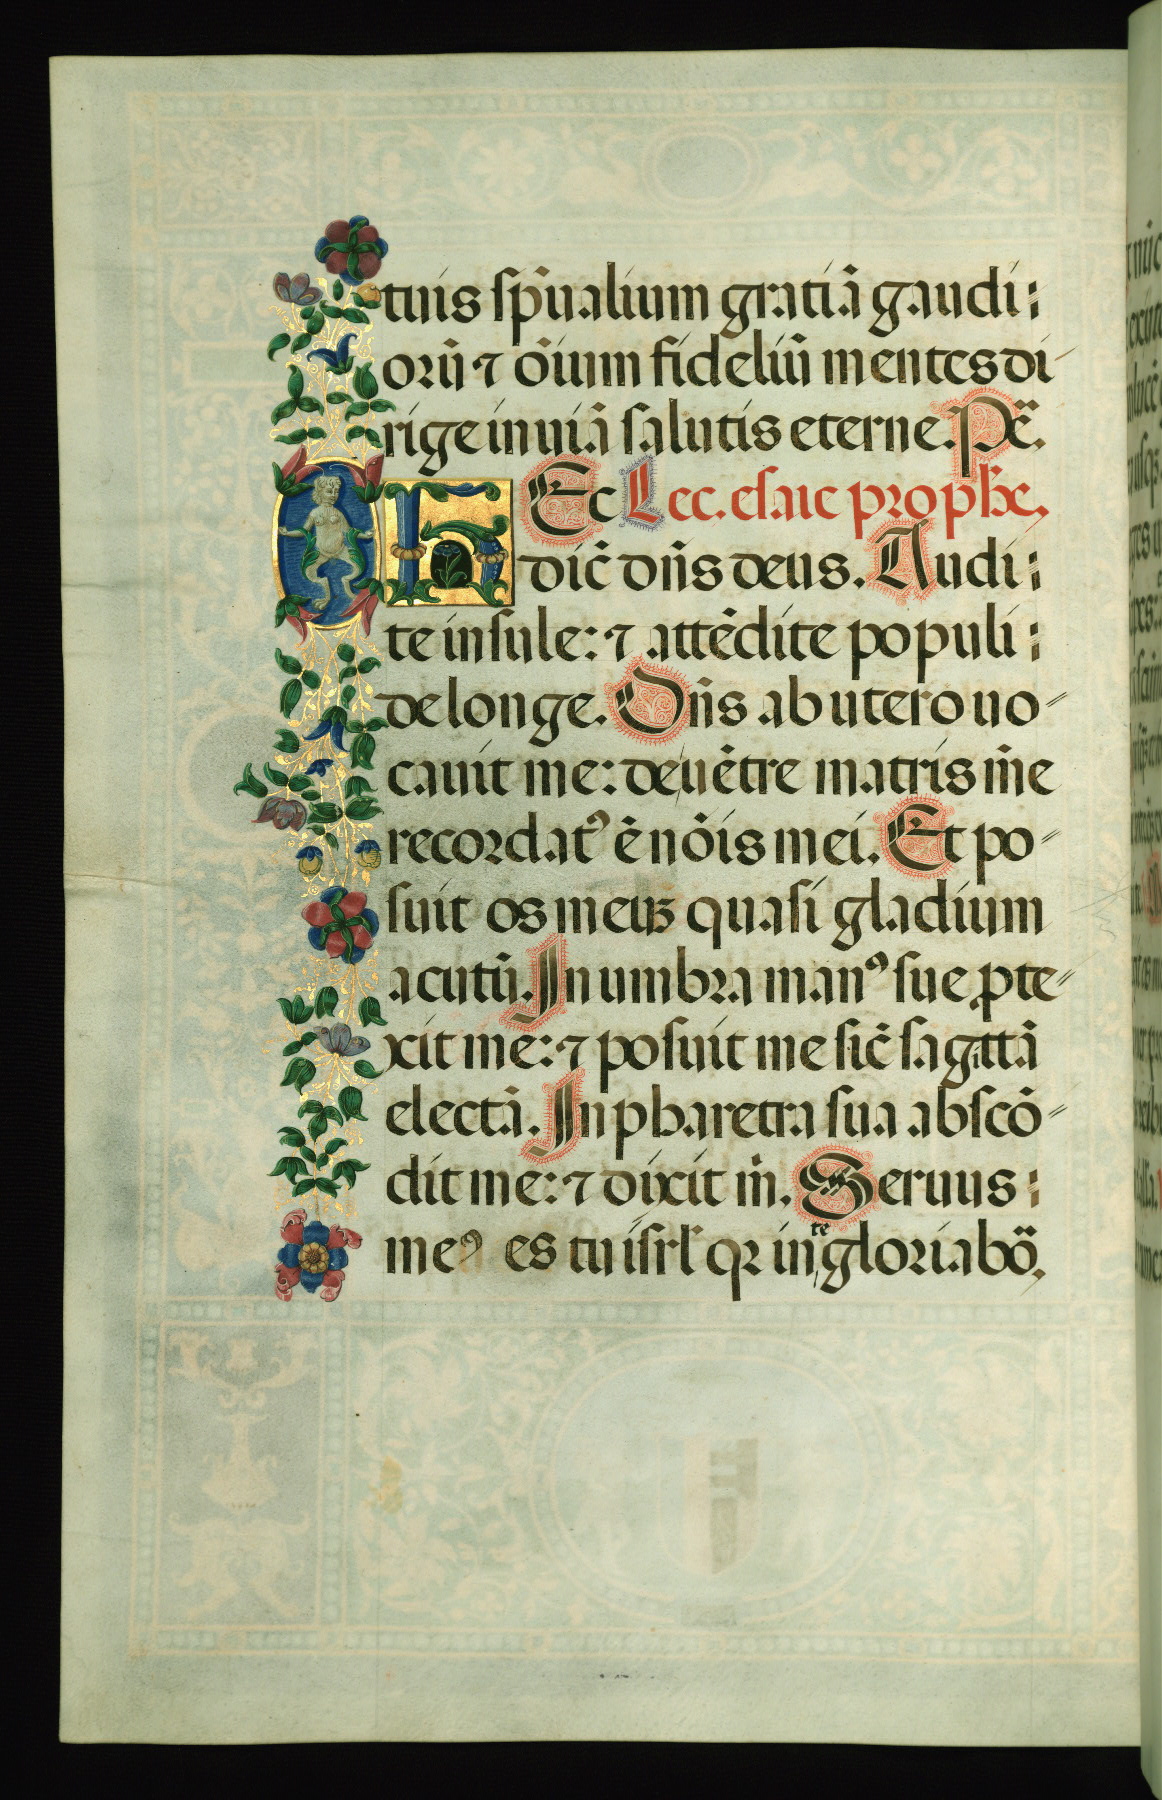 tuis sp̄ualium gratiā gaudi
orū ⁊ oīum fideliū mentes di-
rige in uiā salutis eterne. P̄c̄.
Hec Lec. esaie prophe.
dic̄ dn̄s deus. Audi
te insule: ⁊ attēdite populi
de longe. Dn̄s ab utero uo-
cauit me: de uētre matris m̄e
recordatꝰ ē nōis mei. Et po-
suit os meuꝫ quasi gladium
acutū. In umbra manꝰ sue ꝓte-
xit me: ⁊ posuit me sic̄ sagittā
electā. In pharetra sua abscō-
dit me: ⁊ dixit m̄. Seruus
meꝰ es tu isrl̄ qꝛ in te gloriabō.